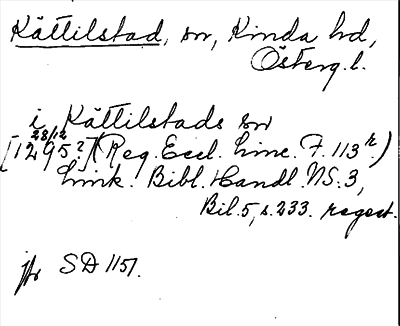 Kättilstad, sn, Kinda hd,
Österg. l.
i Kättilstads sn
28/12
[1295?] (Reg. Eccl. Linc. F. 113 r.)
Link. Bibl. Handl. NS. 3,
Bil. 5, s. 233. regest.
jfr SD 1151.